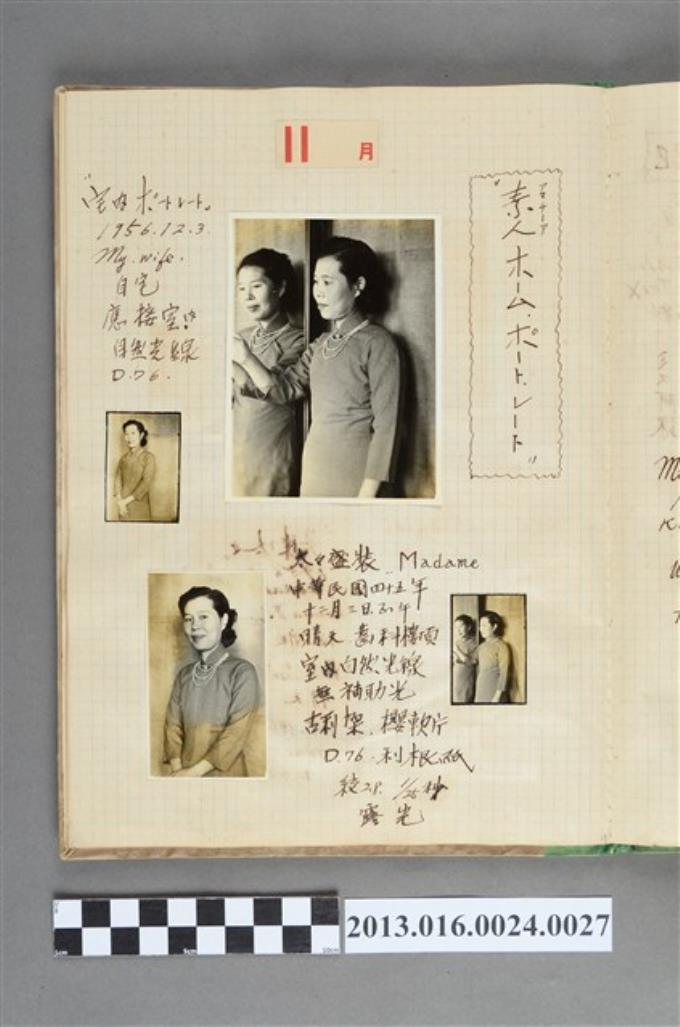 11月
"素人ホーム.ポートレート"
アマチーア
"室内ポートレート"
1956.12.3.
My.wife.
自宅
應接室內
自然光線
D.76.
太々盛裝 "Madame
中華民國四十五年
十二月三日正午
晴天 齒科樓頂
室內自然光線
無補助光
櫻軟片
D.76.利根紙
絞2.8. 1/25秒
露光
2013.016.0024.0027
1cm
5cm
10cm